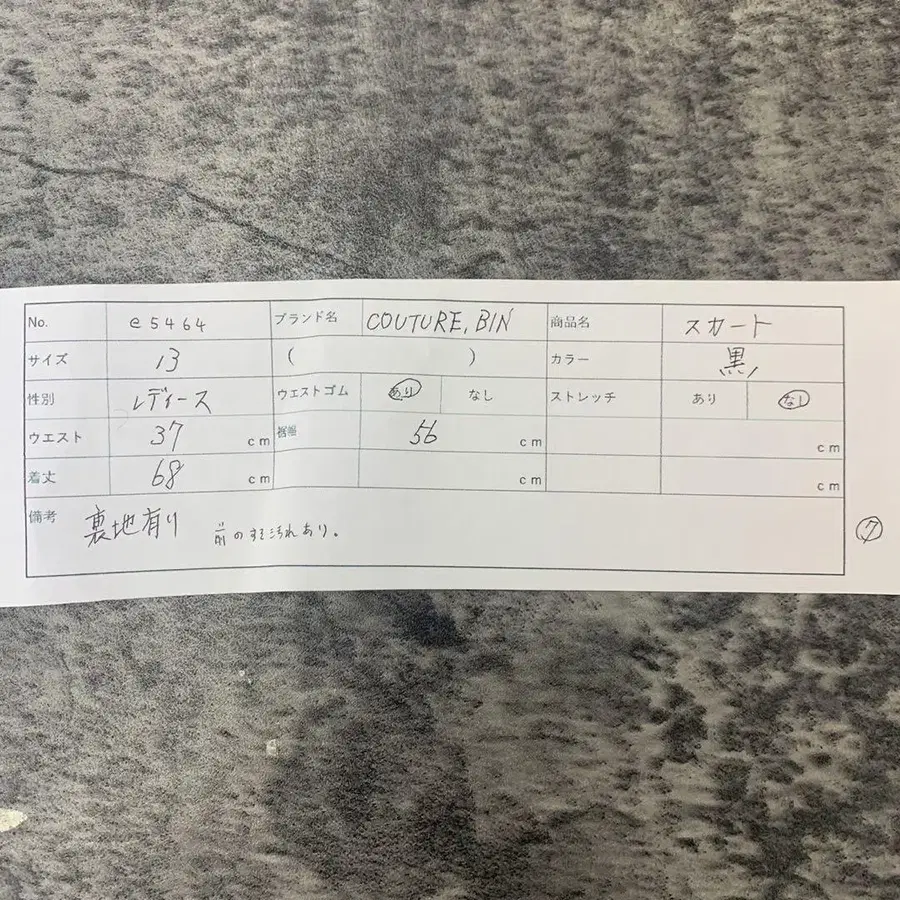 No. e5464 ブランド名 COUTURE, BIN 商品名 スカート
サイズ 13 ( ) カラー 黒
性別 レディース ウエストゴム あり なし ストレッチ あり なし
ウエスト 37 cm 裾幅 56 cm cm
着丈 68 cm cm cm
備考 裏地有り 前のすそ汚れあり。
ク